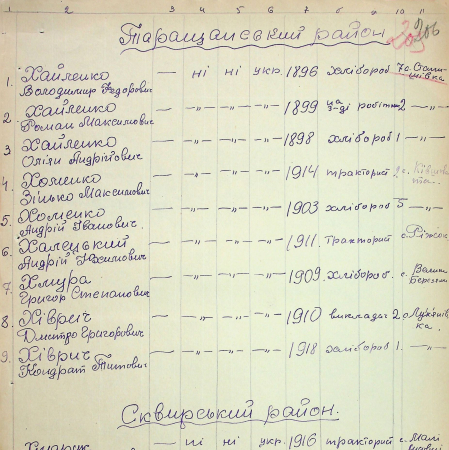 1 2 3 4 5 6 7 8 9 10 11
206
Таращанський район
1. Хайленко — ні ні укр. 1896 хлібороб 7
Володимир Федорович
2. Хайленко — „ — „ — „ — 1899 робітн 2 — „ —
Роман Максимович
3 Хайленко — „ — „ — „ — 1898 хлібороб 1 — „ —
Олія Андрійович
4. Хоменко — „ — „ — „ — 1914 тракторист 2
Зінько Максимович
5. Хоменко — „ — „ — „ — 1903 хлібороб 5 — „ —
Андрій Іванович.
6. Халецький — „ — „ — „ — 1911. тракторист с.
Андрій Якимович
7 Хмура — „ — „ — „ — 1909. хлібороб. с. Велика
Григор Степанович
8. Хіврич — „ — „ — „ — 1910 виклада 2
Дмитро Григорович
9. Хіврич — „ — „ — „ — 1918 хлібороб 1. — „ —
Кондрат Титович
Сквирський район.
— ні ні укр. 1916 тракторист с.